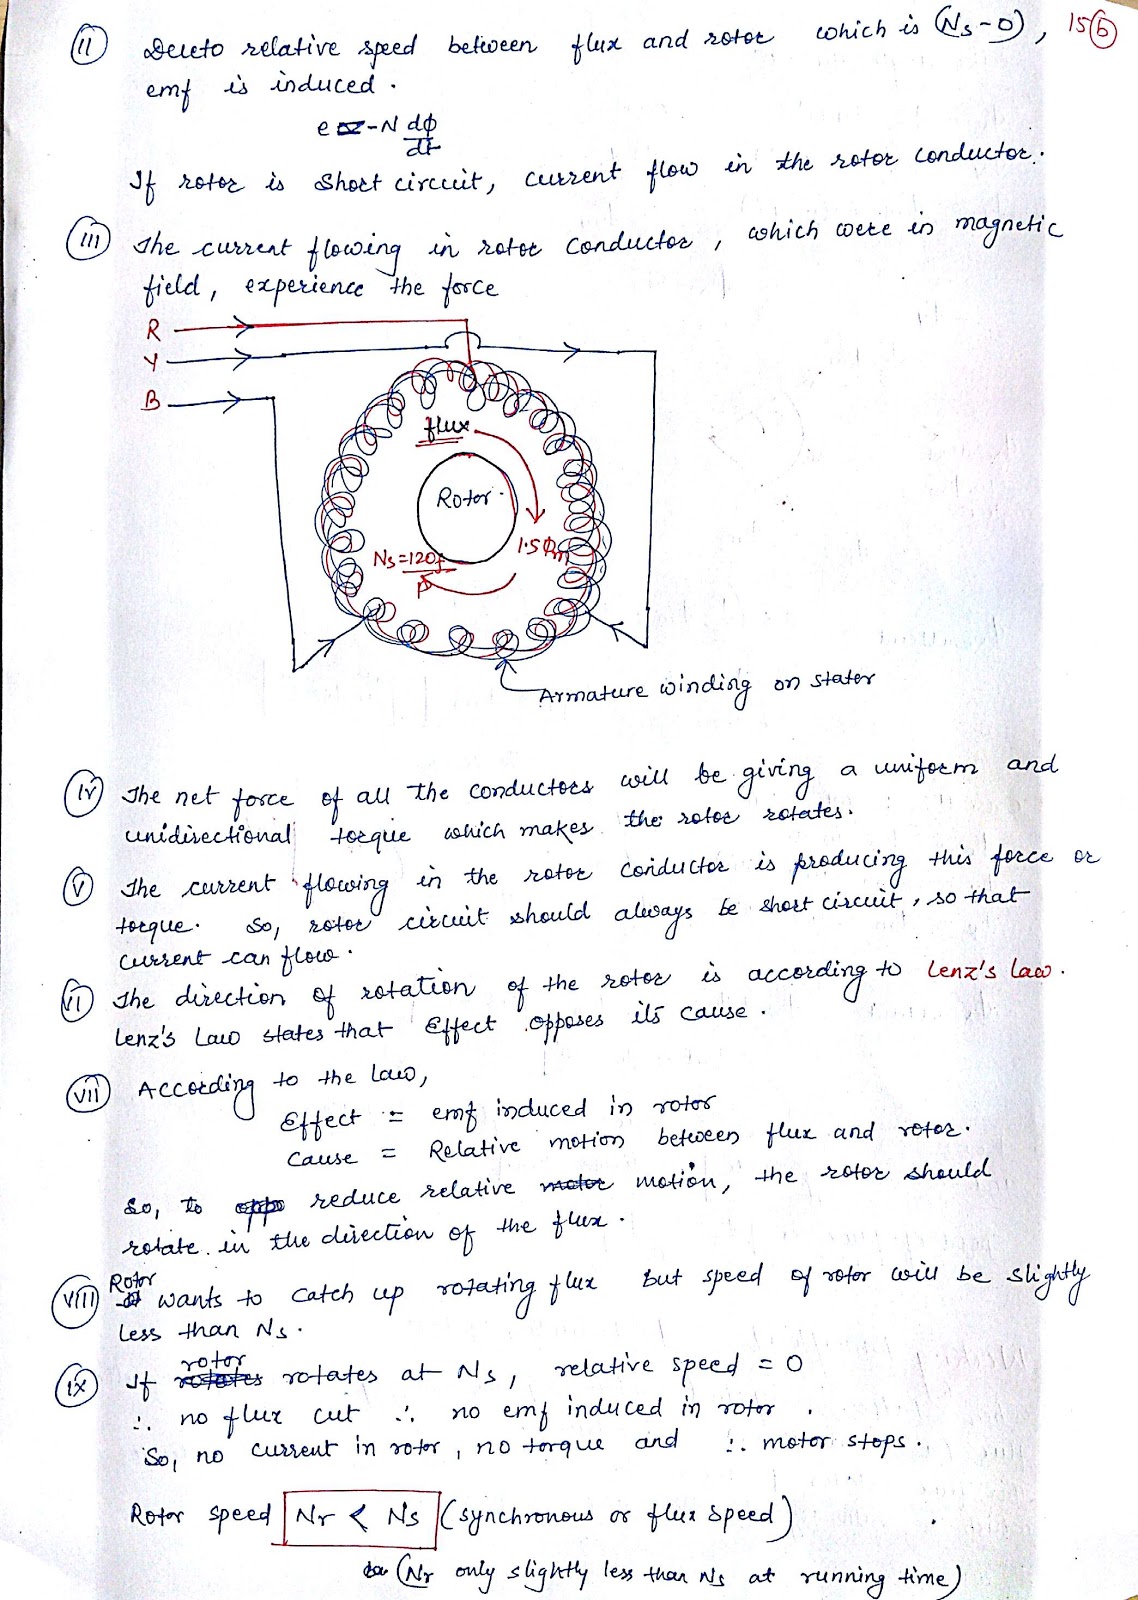 15(b)
(ii) Dueto relative speed between flux and rotor which is (Ns-0),
emf is induced.
e = -N dφ/dt
If rotor is short circuit, current flow in the rotor conductor.
(iii) The current flowing in rotor conductor, which were in magnetic
field, experience the force
R
Y
B
flux
Rotor
1.5 Φm
Ns = 120f/P
Armature winding on stator
(iv) The net force of all the conductors will be giving a uniform and
unidirectional torque which makes the rotor rotates.
(v) The current flowing in the rotor conductor is producing this force or
torque. So, rotor circuit should always be short circuit, so that
current can flow.
(vi) The direction of rotation of the rotor is according to Lenz's law.
Lenz's Law states that Effect opposes its cause.
(vii) According to the Law,
Effect = emf induced in rotor
Cause = Relative motion between flux and rotor.
So, to oppo reduce relative motor motion, the rotor should
rotate in the direction of the flux.
(viii) Rotor wants to catch up rotating flux but speed of rotor will be slightly
less than Ns.
(ix) If rotates rotor rotates at Ns, relative speed = 0
∴ no flux cut ∴ no emf induced in rotor.
So, no current in rotor, no torque and ∴ motor stops.
Rotor speed Nr < Ns (synchronous or flux speed)
(Nr only slightly less than Ns at running time)